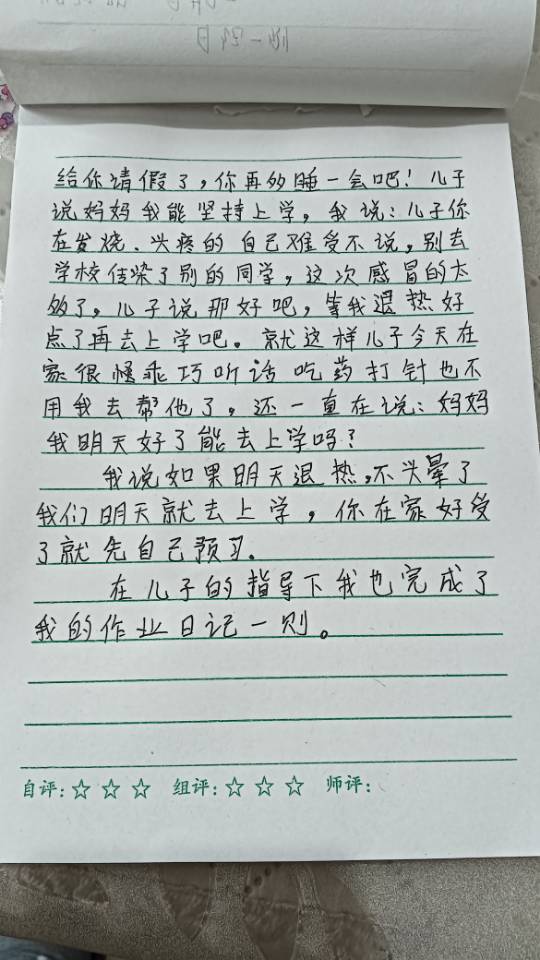 给你请假了，你再多睡一会吧！儿子
说妈妈我能坚持上学，我说：儿子你
在发烧、头疼的自己难受不说，别去
学校传染了别的同学，这次感冒的太
多了，儿子说那好吧，等我退热好
点了再去上学吧。就这样儿子今天在
家很乖巧听话吃药打针也不
用我去帮他了，还一直在说：妈妈
我明天好了能去上学吗？
我说如果明天退热，不头晕了
我们明天就去上学，你在家好受
了就先自己预习。
在儿子的指导下我也完成了
我的作业日记一则。
自评：☆ ☆ ☆ 组评：☆ ☆ ☆ 师评：